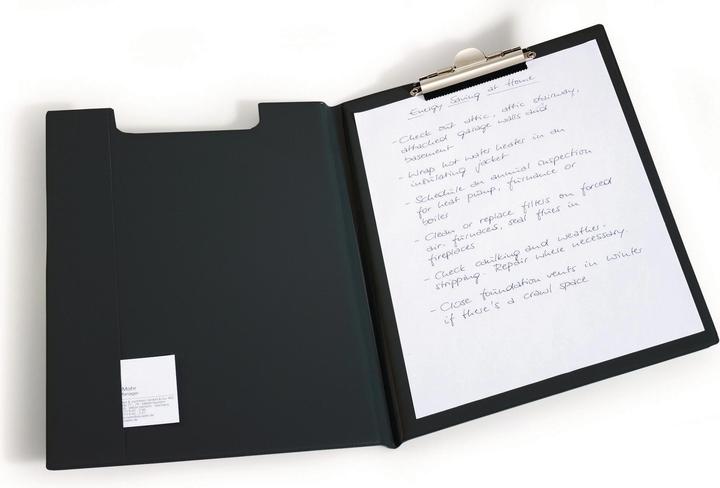 Energy Saving at Home
- Check out attic, attic stairway,
attached garage walls and
basement
- Wrap hot water heater in an
insulating jacket
- Schedule an annual inspection
for heat pump, furnance or
boiler
- Clean or replace filters on forced
air, furnaces, seal flues in
fireplaces
- Check caulking and weather-
stripping. Repair where necessary.
- Close foundation vents in winter
if there's a crawl space
Mohr
Manager